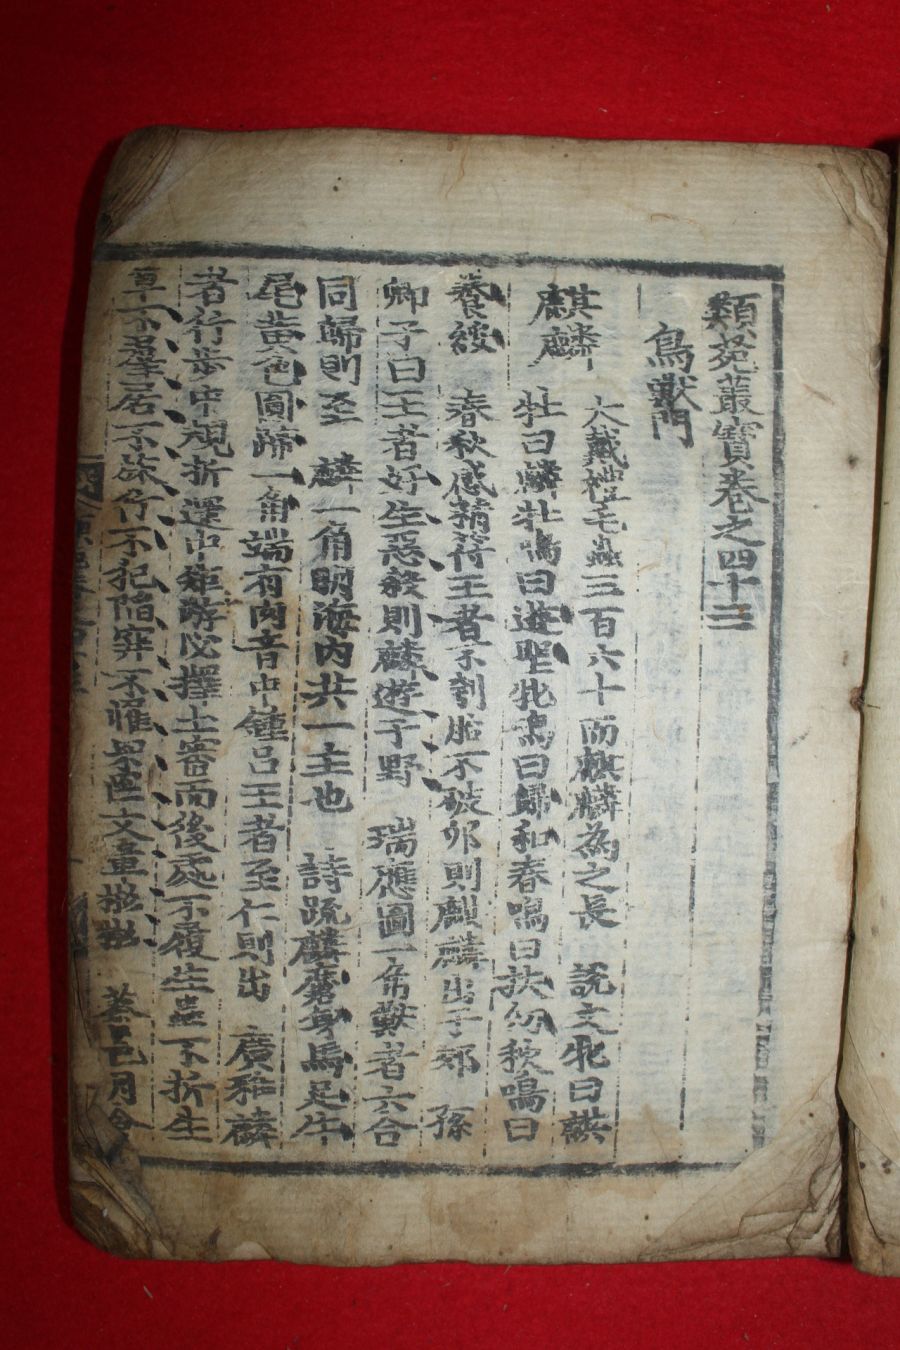 類苑叢寶卷之四十三
鳥獸門
麒麟 大戴禮毛蟲三百六十而麒麟為之長 說文牝曰麒
牡曰麟牡鳴曰遊聖牝鳴曰歸和春鳴曰扶幼秋鳴曰
養綏 春秋感精符王者不刳胎不破卵則麒麟出于郊 孫
卿子曰王者好生惡殺則麟遊于野 瑞應圖一角獸者六合
同歸則至 麟一角明海內共一主也 詩疏麟麕身馬足牛
尾黃色圓蹄一角端有肉音中鍾呂王者至仁則出 廣雅麟
者行步中規折還中矩游必擇土翔而後處不履生蟲不折生
草不羣居不旅行不犯陷穽不罹罘罔文章彬彬 蔡邕月令